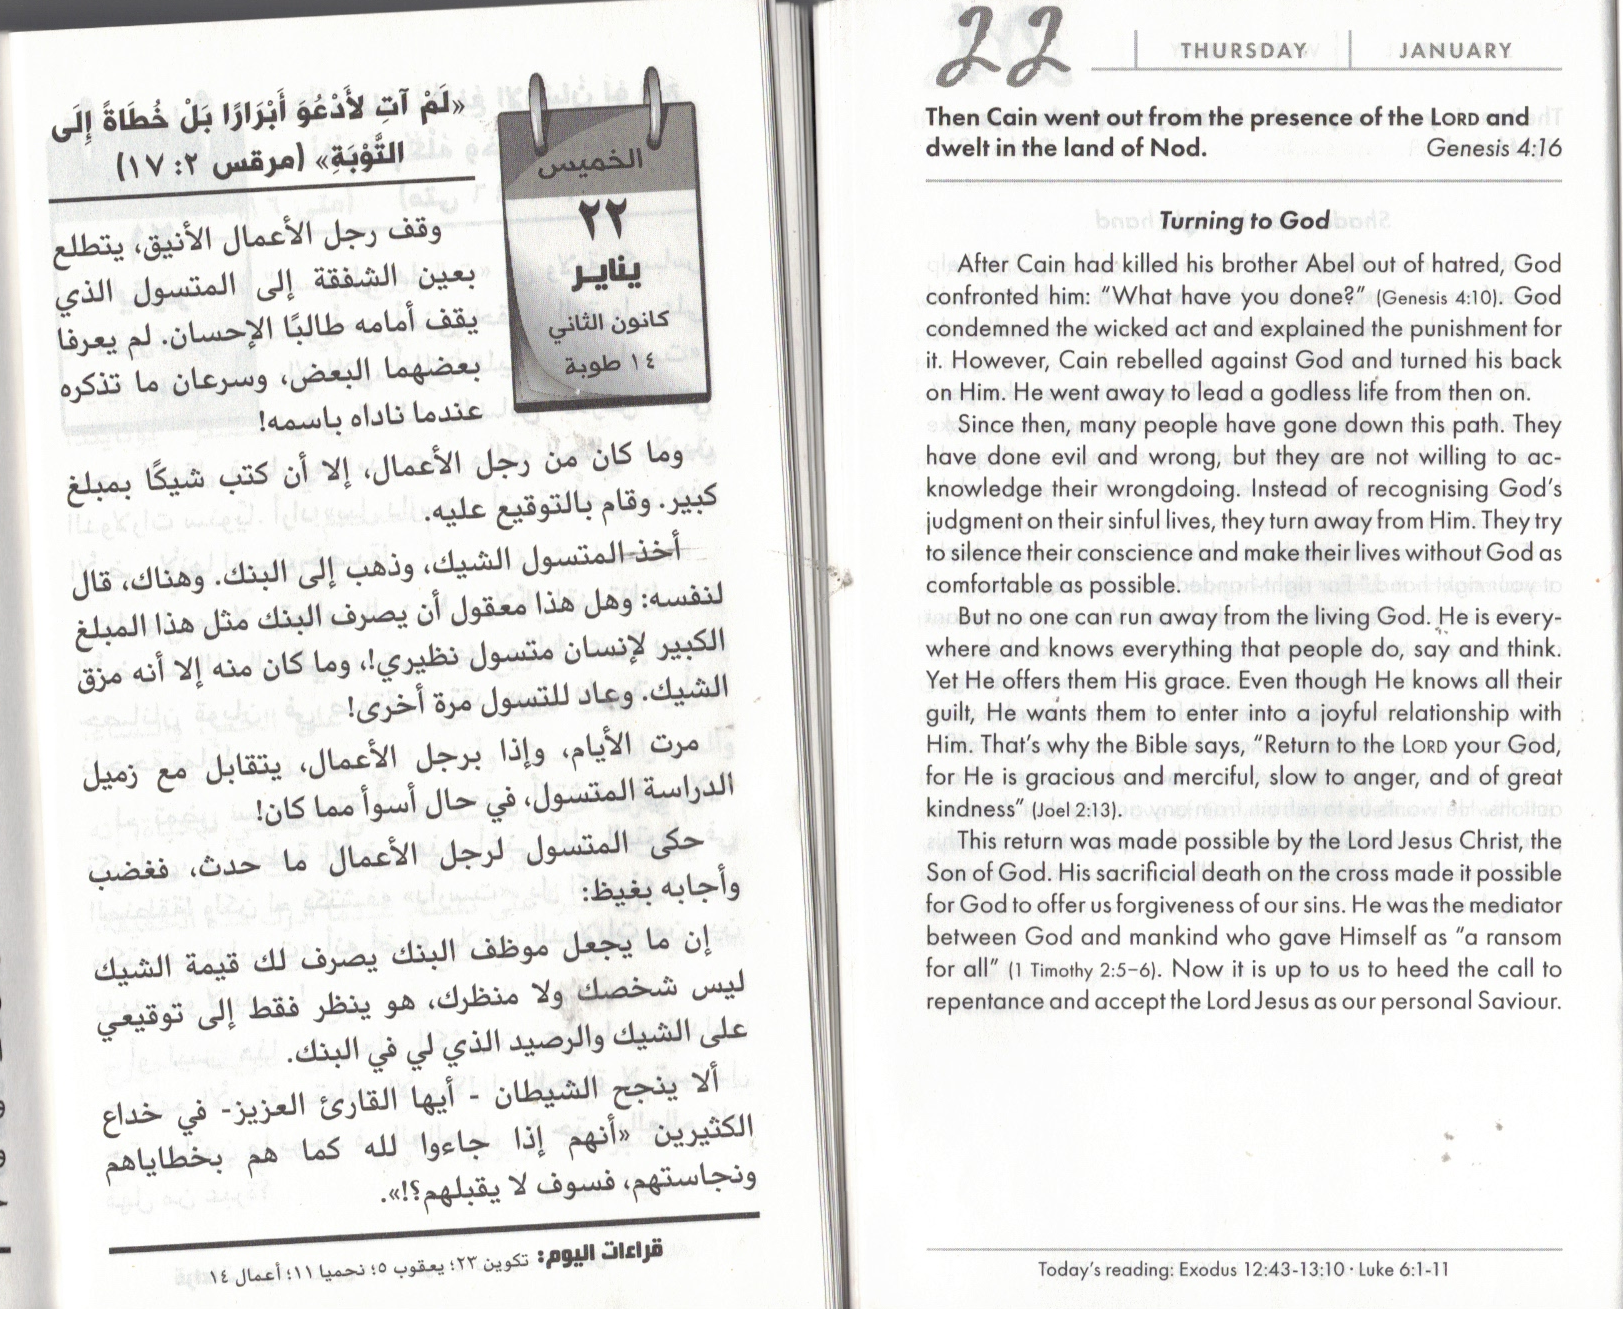 «لَمْ آتِ لأَدْعُوَ أَبْرَارًا بَلْ خُطَاةً إِلَى
التَّوْبَةِ» (مرقس ٢: ١٧)
الخميس
٢٢
يناير
كانون الثاني
١٤ طوبة
وقف رجل الأعمال الأنيق، يتطلع
بعين الشفقة إلى المتسول الذي
يقف أمامه طالبًا الإحسان. لم يعرفا
بعضهما البعض، وسرعان ما تذكره
عندما ناداه باسمه!
وما كان من رجل الأعمال، إلا أن كتب شيكًا بمبلغ
كبير. وقام بالتوقيع عليه.
أخذ المتسول الشيك، وذهب إلى البنك. وهناك، قال
لنفسه: وهل هذا معقول أن يصرف البنك مثل هذا المبلغ
الكبير لإنسان متسول نظيري!، وما كان منه إلا أنه مزق
الشيك. وعاد للتسول مرة أخرى!
مرت الأيام، وإذا برجل الأعمال، يتقابل مع زميل
الدراسة المتسول، في حال أسوأ مما كان!
حكى المتسول لرجل الأعمال ما حدث، فغضب
وأجابه بغيظ:
إن ما يجعل موظف البنك يصرف لك قيمة الشيك
ليس شخصك ولا منظرك، هو ينظر فقط إلى توقيعي
على الشيك والرصيد الذي لي في البنك.
ألا ينجح الشيطان - أيها القارئ العزيز- في خداع
الكثيرين «أنهم إذا جاءوا لله كما هم بخطاياهم
ونجاستهم، فسوف لا يقبلهم؟!».
قراءات اليوم: تكوين ٢٣؛ يعقوب ٥؛ نحميا ١١؛ أعمال ١٤
22 THURSDAY JANUARY
Then Cain went out from the presence of the LORD and
dwelt in the land of Nod. Genesis 4:16
Turning to God
After Cain had killed his brother Abel out of hatred, God
confronted him: “What have you done?” (Genesis 4:10). God
condemned the wicked act and explained the punishment for
it. However, Cain rebelled against God and turned his back
on Him. He went away to lead a godless life from then on.
Since then, many people have gone down this path. They
have done evil and wrong, but they are not willing to ac-
knowledge their wrongdoing. Instead of recognising God’s
judgment on their sinful lives, they turn away from Him. They try
to silence their conscience and make their lives without God as
comfortable as possible.
But no one can run away from the living God. He is every-
where and knows everything that people do, say and think.
Yet He offers them His grace. Even though He knows all their
guilt, He wants them to enter into a joyful relationship with
Him. That’s why the Bible says, “Return to the LORD your God,
for He is gracious and merciful, slow to anger, and of great
kindness” (Joel 2:13).
This return was made possible by the Lord Jesus Christ, the
Son of God. His sacrificial death on the cross made it possible
for God to offer us forgiveness of our sins. He was the mediator
between God and mankind who gave Himself as “a ransom
for all” (1 Timothy 2:5–6). Now it is up to us to heed the call to
repentance and accept the Lord Jesus as our personal Saviour.
Today’s reading: Exodus 12:43-13:10 · Luke 6:1-11